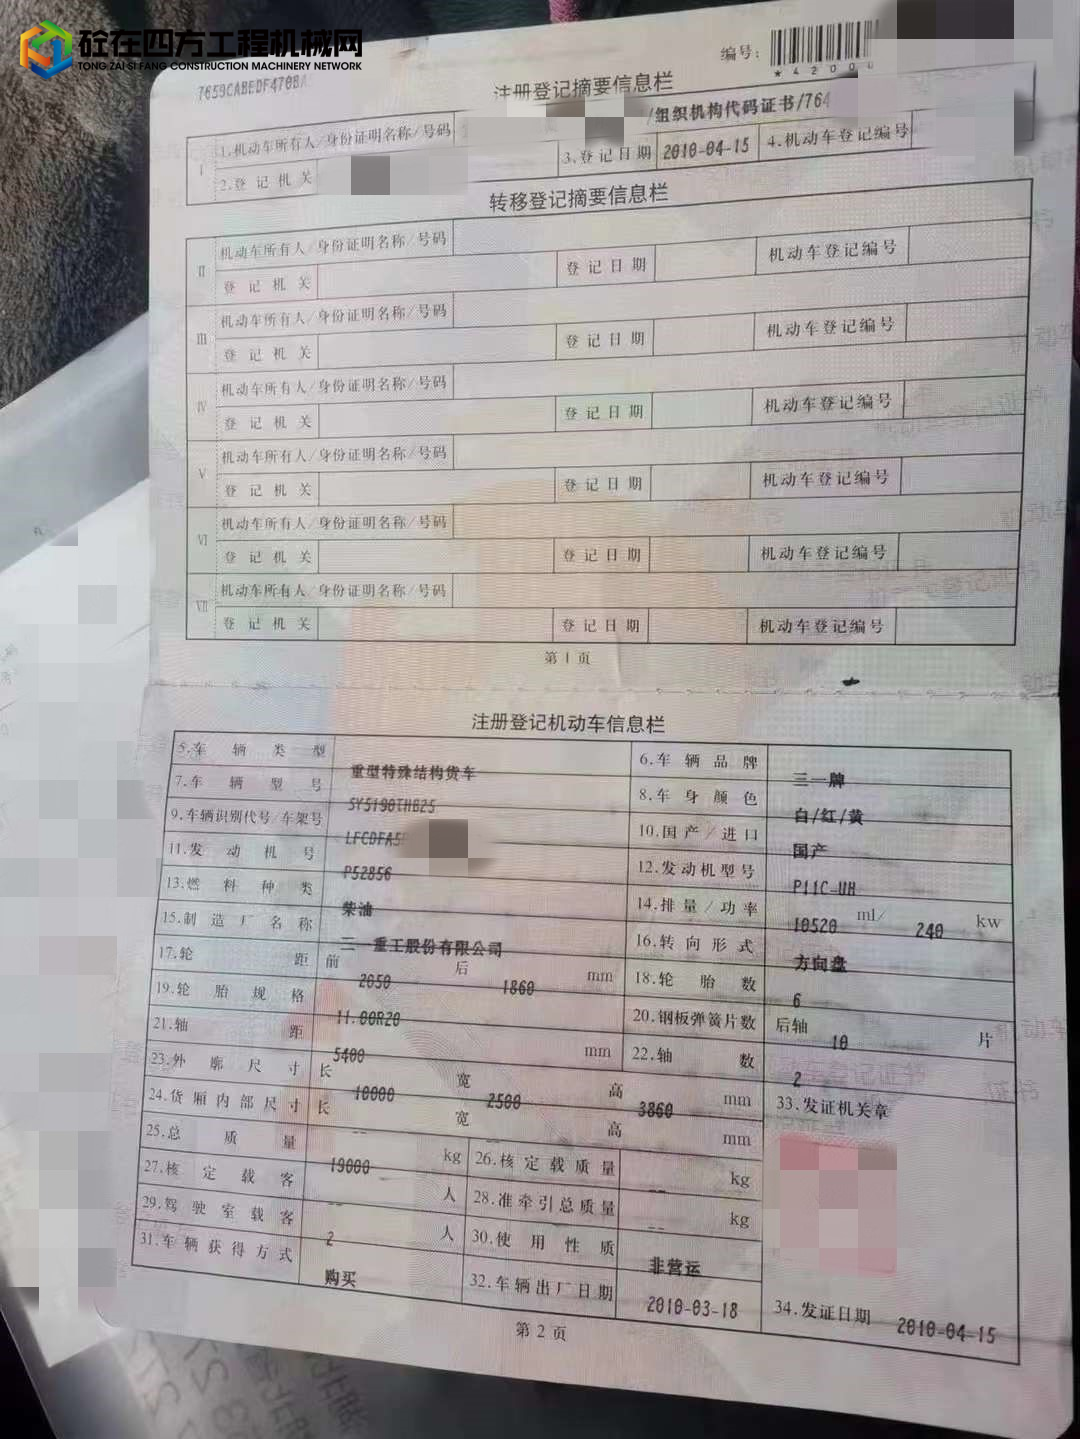 砼在四方工程机械网
TONG ZAI SI FANG CONSTRUCTION MACHINERY NETWORK
编号:
*4200
7659CABEDF470BA
注册登记摘要信息栏
I 1.机动车所有人/身份证明名称/号码 /组织机构代码证书/764
2.登记机关 3.登记日期 2010-04-15 4.机动车登记编号
转移登记摘要信息栏
II 机动车所有人/身份证明名称/号码
登记机关 登记日期 机动车登记编号
III 机动车所有人/身份证明名称/号码
登记机关 登记日期 机动车登记编号
IV 机动车所有人/身份证明名称/号码
登记机关 登记日期 机动车登记编号
V 机动车所有人/身份证明名称/号码
登记机关 登记日期 机动车登记编号
VI 机动车所有人/身份证明名称/号码
登记机关 登记日期 机动车登记编号
VII 机动车所有人/身份证明名称/号码
登记机关 登记日期 机动车登记编号
第1页
注册登记机动车信息栏
5.车辆类型 重型特殊结构货车 6.车辆品牌 三一牌
7.车辆型号 SY5190THB25 8.车身颜色 白/红/黄
9.车辆识别代号/车架号 LFCDFA5 10.国产/进口 国产
11.发动机号 P52856 12.发动机型号 P11C-UH
13.燃料种类 柴油 14.排量/功率 10520 ml/ 240 kw
15.制造厂名称 三一重工股份有限公司 16.转向形式 方向盘
17.轮距 前 2050 后 1860 mm 18.轮胎数 6
19.轮胎规格 11.00R20 20.钢板弹簧片数 后轴 10 片
21.轴距 5400 mm 22.轴数 2
23.外廓尺寸 长 10000 宽 2500 高 3860 mm 33.发证机关章
24.货厢内部尺寸 长 -- 宽 -- 高 mm
25.总质量 19000 kg 26.核定载质量 -- kg
27.核定载客 -- 人 28.准牵引总质量 -- kg
29.驾驶室载客 2 人 30.使用性质 非营运
31.车辆获得方式 购买 32.车辆出厂日期 2010-03-18 34.发证日期 2010-04-15
第2页